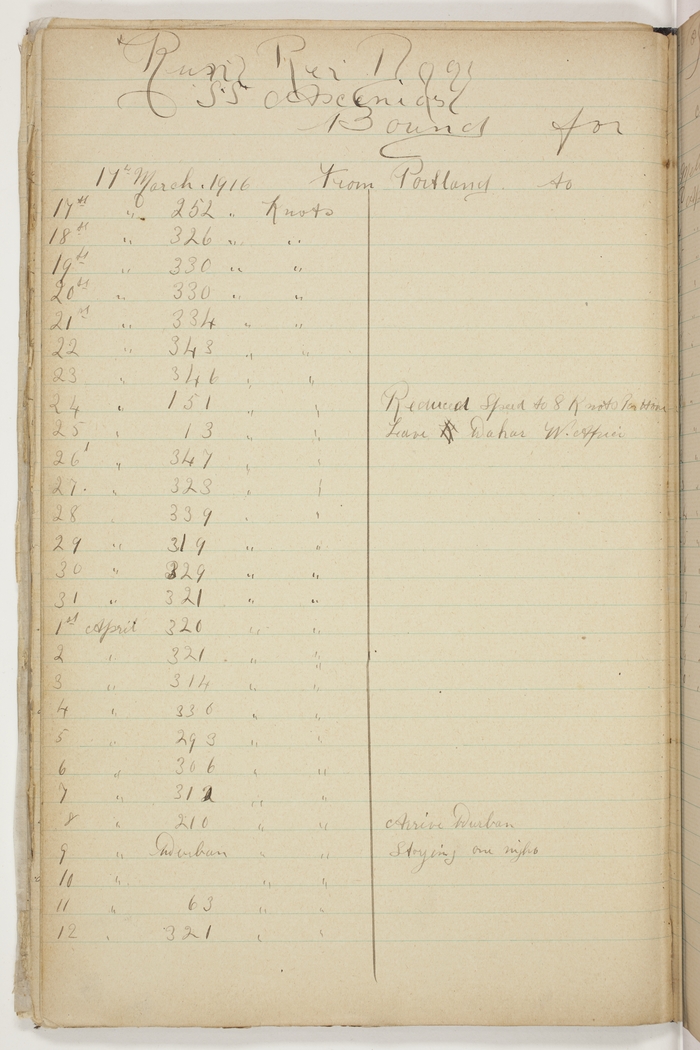 Runs Per Day
SS Ascenias
Bound for
17th March. 1916 From Portland to
17th " 252 " Knots
18th " 326 " "
19th " 330 " "
20th " 330 " "
21st " 334 " "
22 " 343 " "
23 " 346 " "
24 " 151 " " Reduced Speed to 8 Knots Per Hour
25 " 13 " " Leave Dakar W. Africa
26 " 347 " "
27. " 323 " "
28 " 339 "
29 " 319 " "
30 " 329 " "
31 " 321 " "
1st April 320 " "
2 " 321 " "
3 " 314 " "
4 " 330 " "
5 " 293 " "
6 " 306 " "
7 " 312 " "
8 " 210 " " Arrive Durban
9 " Durban " " Staying one night
10 " " "
11 " 63 " "
12 " 321 " "